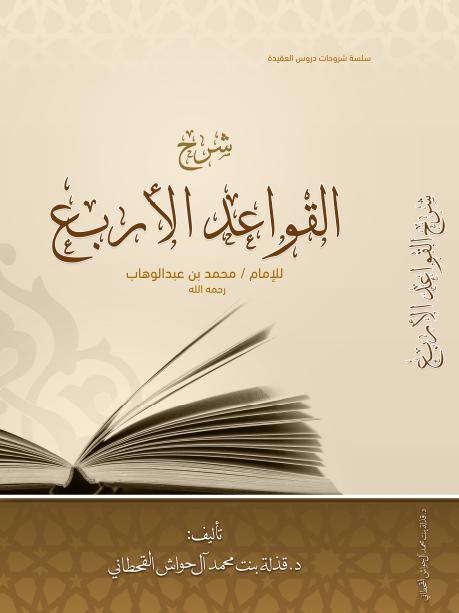 سلسة شروحات دروس العقيدة
شرح
القواعد الأربع
للإمام / محمد بن عبدالوهاب
رحمه الله
تأليف:
د. قذلة بنت محمد آل حواش القحطاني
شرح القواعد الأربع
د. قذلة بنت محمد آل حواش القحطاني